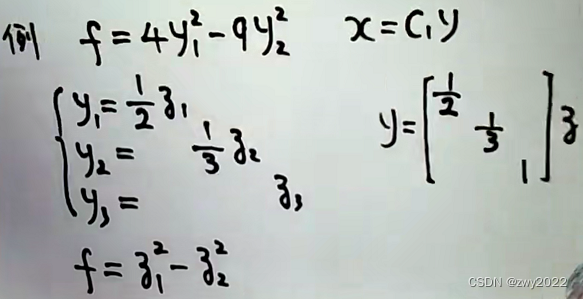 例 f = 4y₁² - 9y₂² x = C₁y
y₁ = 1/2 z₁
y₂ = 1/3 z₂
y₃ = z₃
y = [1/2 1/3 1] z
f = z₁² - z₂²
CSDN @zwy2022